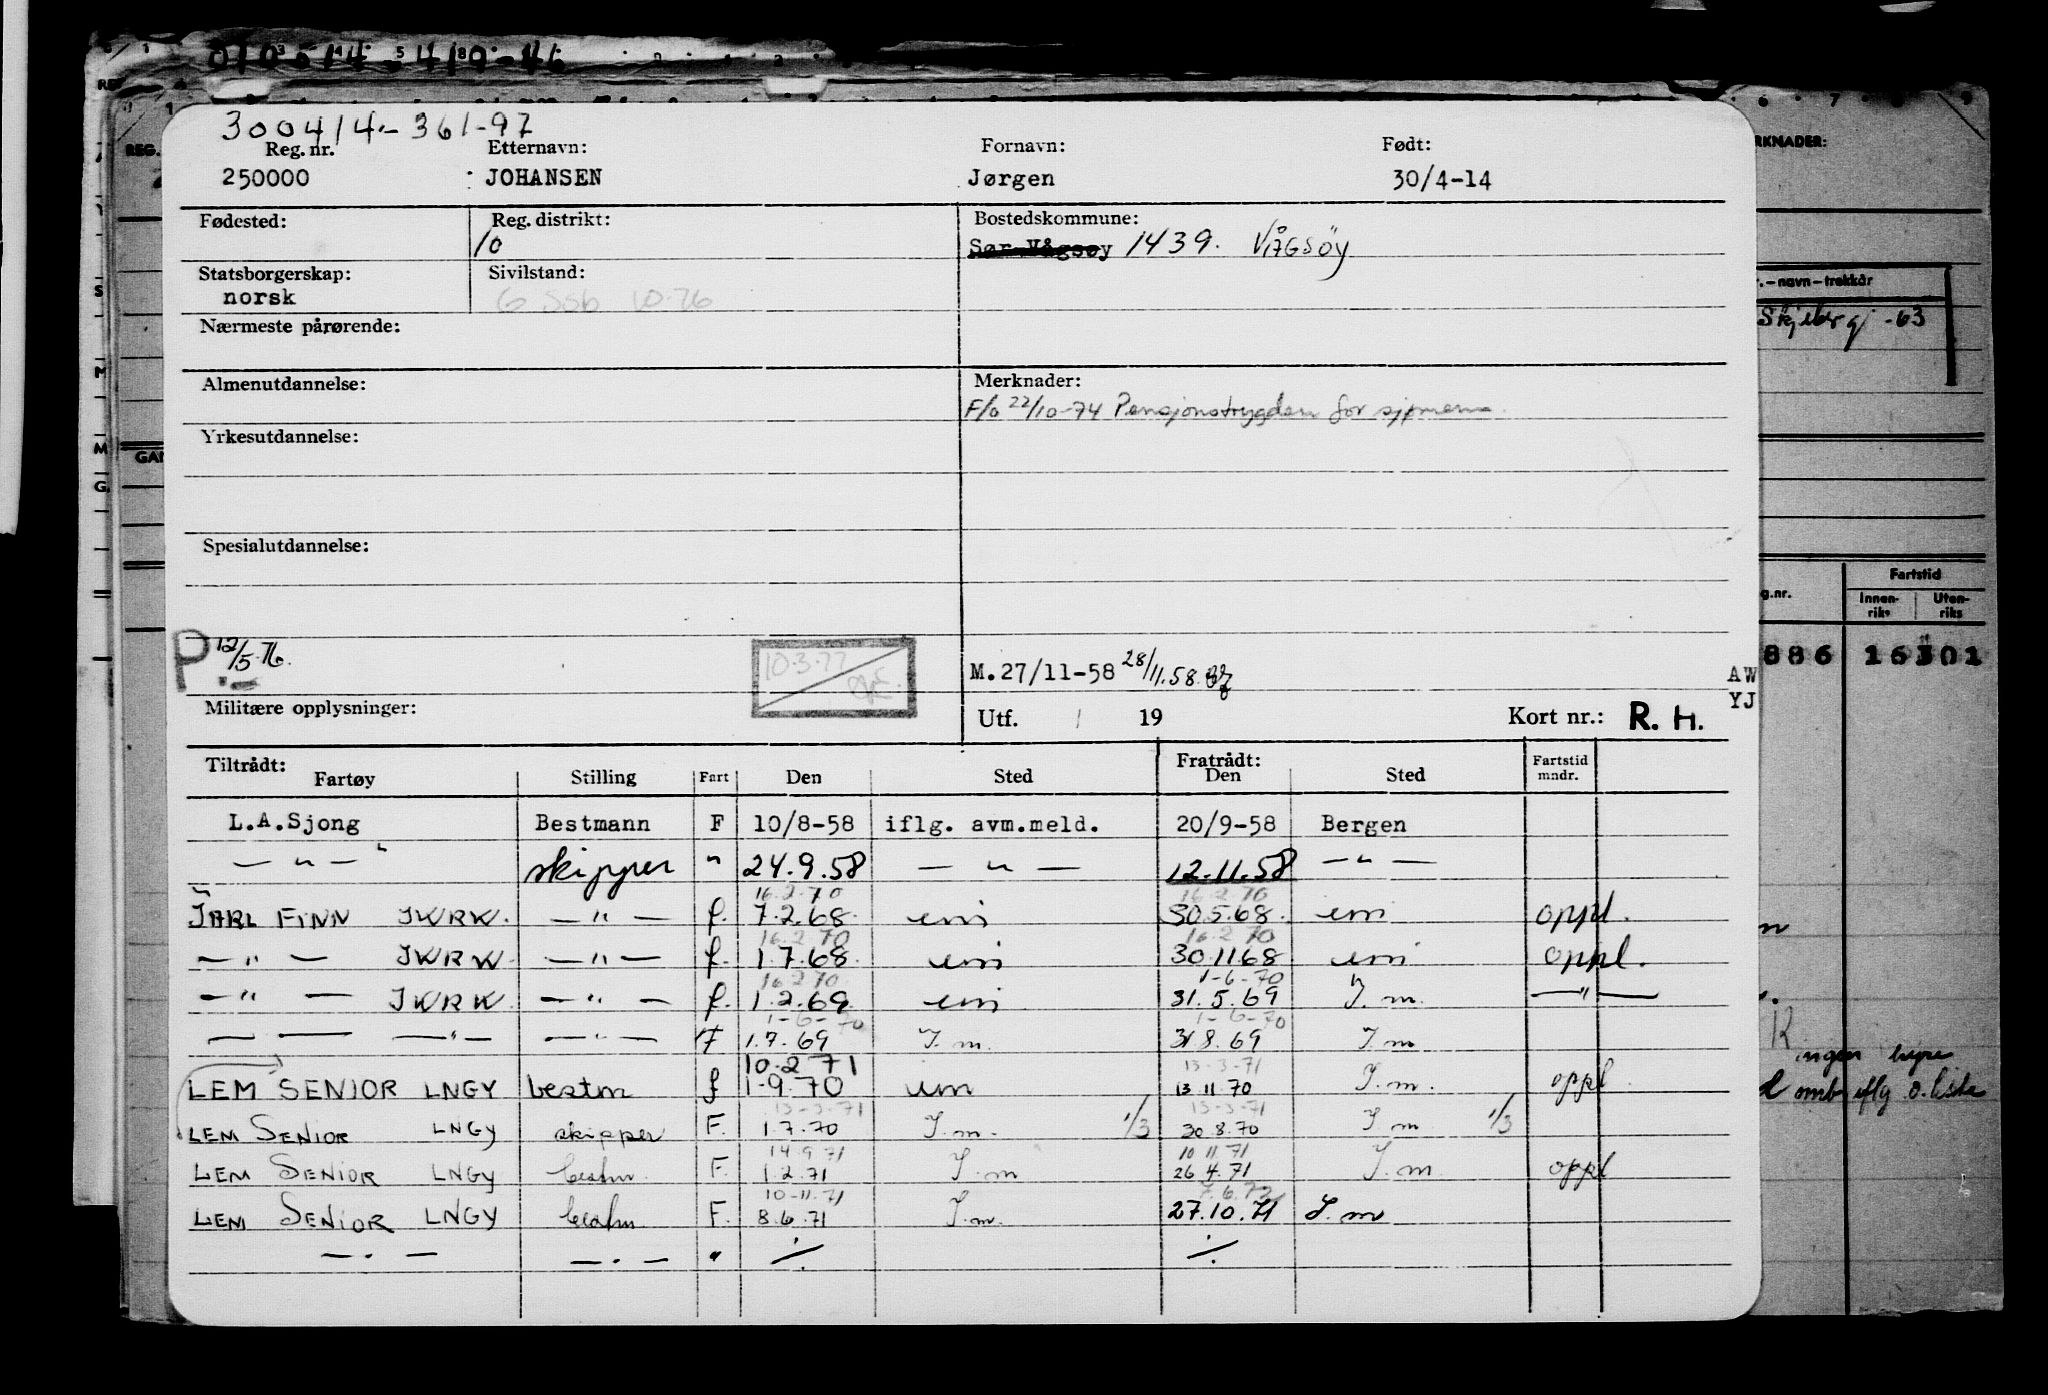 010514-410-46
300414-361-97
Reg. nr. Etternavn: Fornavn: Født:
250000 JOHANSEN Jørgen 30/4-14
Fødested: Reg. distrikt: Bostedskommune:
10 Sør-Vågsøy 1439. VÅGSØY
Statsborgerskap: Sivilstand:
norsk G SSB 10-76
Nærmeste pårørende:
Almenutdannelse: Merknader:
F/o 22/10-74 Pensjonstrygden for sjømenn
Yrkesutdannelse:
Spesialutdannelse:
P 12/5.76. 10.3.77 M.27/11-58 28/11.58
Militære opplysninger: Utf. / 19 Kort nr.: R. H.
Tiltrådt: Fratrådt: Fartstid
Fartøy Stilling Fart Den Sted Den Sted mndr.
L.A.Sjong Bestmann F 10/8-58 iflg. avm.meld. 20/9-58 Bergen
— " — skipper " 24.9.58 — " — 12.11.58 — " —
16.2.70 16.2.70
JARL FINN JWRK. — " — f. 7.2.68. um 30.5.68. um oppl.
16.2.70 16.2.70
— " — JWRK — " — f. 1.7.68. um 30.11.68 um oppl.
16.2.70 1-6-70
— " — JWRK. — " — f. 1.2.69. um 31.5.69 I.m. — " —
1-6-70 1-6-70
— — — " — — " — F 1.7.69 I.m. 31.8.69 I.m
10.2 71 13-3-71
LEM SENIOR LNGY bestm f 1-9.70 um 13.11.70 I.m. oppl.
13-3-71 13-3-71
LEM SENIOR LNGY skipper F. 1.7.70 I.m. 1/3 30.8.70 I.m 1/3
14.9.71 10 11 71
LEM SENIOR LNGY bestm. F. 1.2.71 I.m 26.4.71 I.m. oppl
10-11.71 7.6.72
LEM SENIOR LNGY bestm F. 8.6.71 I.m. 27.10.71 I.m
— . — — . — " ./. ./.
RKNADER:
r.—navn—trekkår
Skjeberg -63
g.nr. Fartstid
Innen-riks Uten-riks
886 16301
AW
YJ
ingen hyre